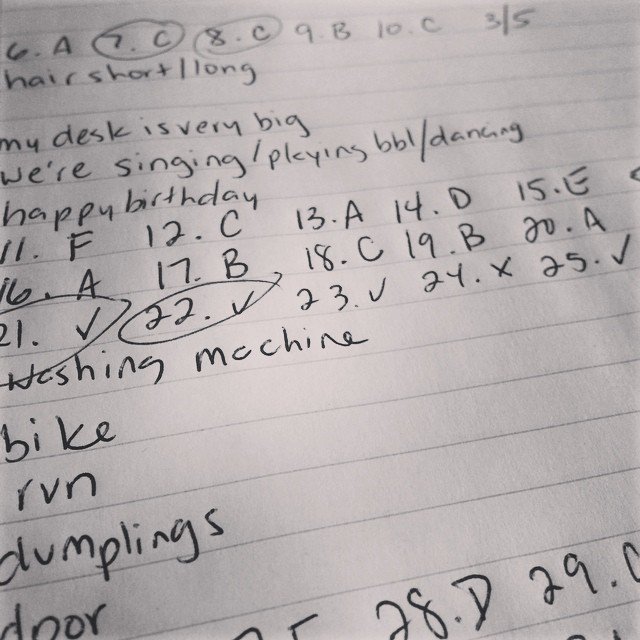 6. A 7. C 8. C 9. B 10. C 3/5
hair short/long
my desk is very big
we're singing/playing bbl/dancing
happy birthday
11. F 12. C 13. A 14. D 15. E
16. A 17. B 18. C 19. B 20. A
21. ✓ 22. ✓ 23. ✓ 24. x 25. ✓
washing machine
bike
run
dumplings
door
28. D 29.